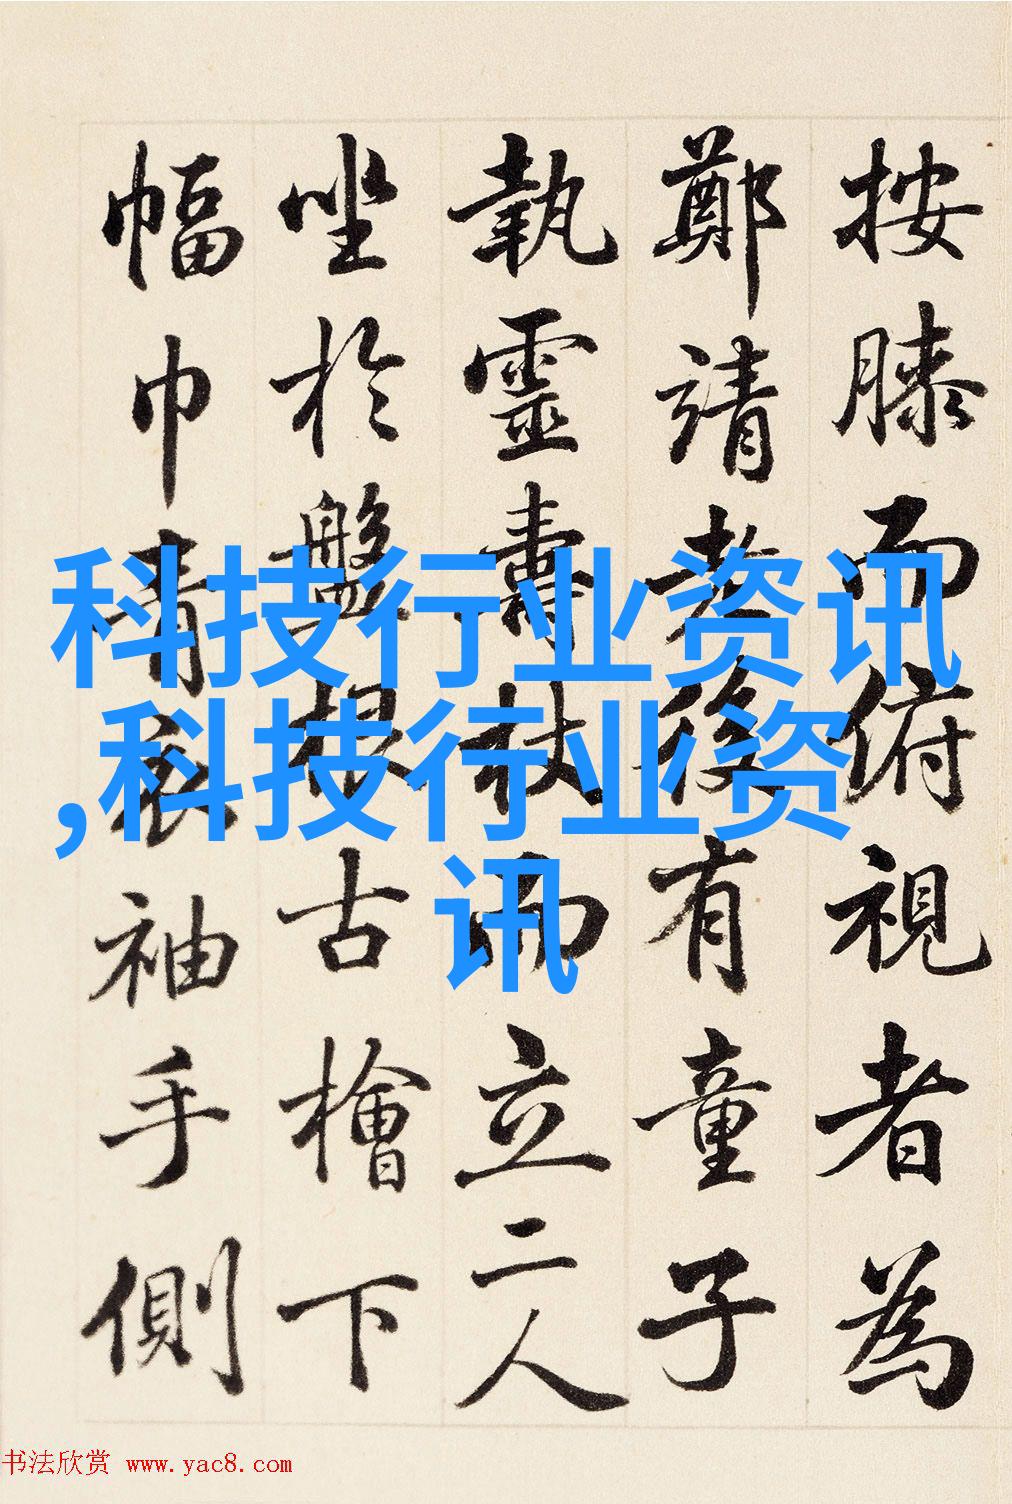 按膝而俯視者為
鄭靖老後有童子
執靈壽杖而立二人
坐於盤根古檜下
幅巾青衣袖手側
科技行业资讯
,科技行业资
讯
书法欣赏 www.yac8.com